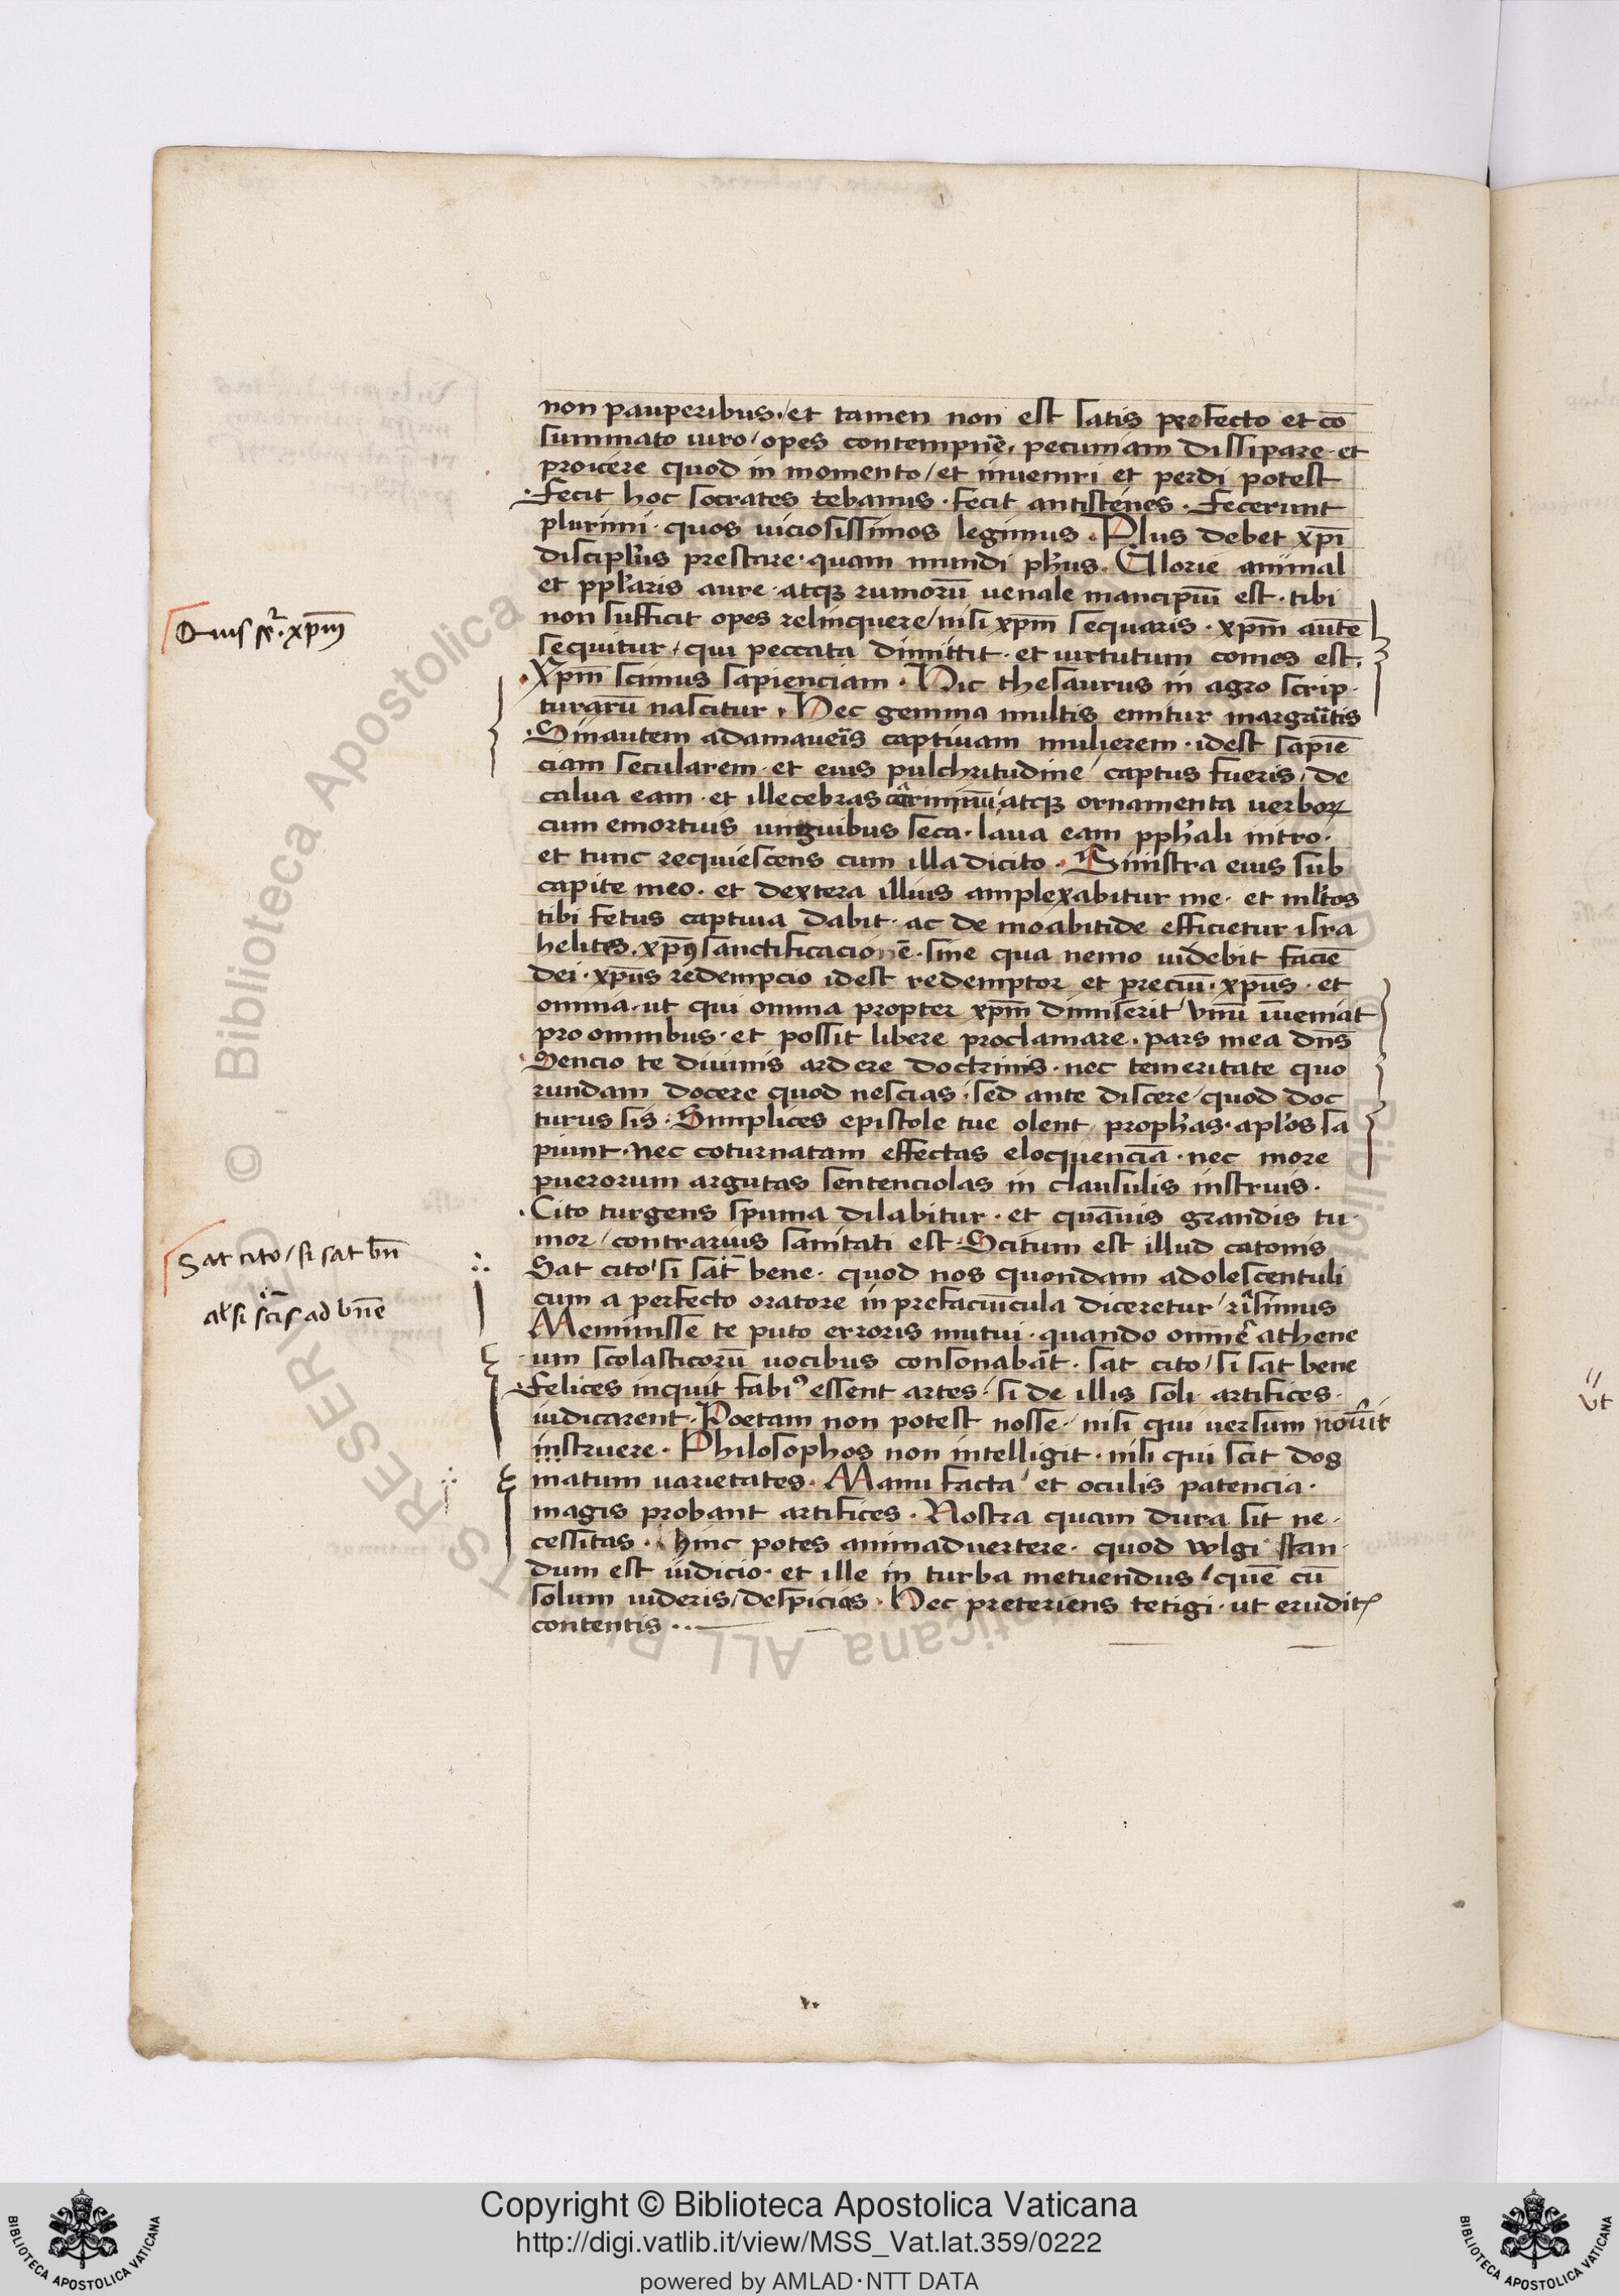 non pauperibus, et tamen non est satis perfecto et cō
summato uiro / opes contempnē, pecuniam dissipare · et
proicere quod in momento / et inueniri et perdi potest
· Fecit hoc socrates tebanus · fecit antistenes · Fecerunt
plurimi · quos uiciosissimos legimus · Plus debet xp̄i
discipl̄us prestare · quam mundi ph̄us · Glorie animal
et ppl̄aris aure · atq3 rumorū uenale mancipiū est · tibi
non sufficit opes relinquere / nisi xp̄m sequaris · xp̄m autē
sequitur / qui peccata dimittit · et uirtutum comes est.
Quis seq̄r · xp̄m
· Xp̄m scimus sapienciam · Hic thesaurus in agro scrip-
turarū nascitur · Hec gemma multis emitur margaritis
· Sin autem adamaueris captiuam mulierem · idest sapiē
ciam secularem · et eius pulchritudine / captus fueris, de
calua eam · et illecebras criniū atq3 ornamenta uerboꝝ
cum emortuis unguibus seca · laua eam pph̄ali nitro ·
et tunc requiescens cum illa dicito · Sinistra eius sub
capite meo · et dextera illius amplexabitur me · et ml̄tos
tibi fetus captiua dabit · ac de moabitide efficietur isra
helites · xp̄us sanctificacionē · sine qua nemo uidebit faciē
dei · xp̄us redempcio idest redemptor et preciū · xp̄us · et
omnia · ut qui omnia propter xp̄m dimiserit / vnū īueniat
pro omnibus · et possit libere proclamare · pars mea dn̄s
· Sencio te diuinis ardere doctrinis · nec temeritate quo
rundam docere quod nescias · sed ante discere / quod doc
turus sis · Simplices epistole tue olent prophās · apl̄os sa
piunt · Nec coturnatam effectas eloquenciā · nec more
puerorum argutas sentenciolas in clausulis instruis ·
· Cito turgens spuma dilabitur · et quāuis grandis tu-
mor / contrarius sanitati est · Scitum est illud catonis
Sat cito / si sat bn̄
Sat cito / si sat bene · quod nos quondam adolescentuli
al̄ si scīs ad bn̄e
cum a perfecto oratore in prefaciūcula diceretur / risimus
Meminisse te puto erroris mutui · quando omne athene
um scolasticorū uocibus consonabāt · sat cito / si sat bene
· Felices inquit fabi9 essent artes / si de illis soli artifices ·
iudicarent · Poetam non potest nosse / nisi qui uersum nouit
instruere · Philosophos non intelligit · nisi qui scit dog
matum uarietates · Manu facta / et oculis patencia ·
magis probant artifices · Nostra quam dura sit ne-
cessitas · hinc potes animaduertere · quod wlgi stan-
dum est iudicio · et ille in turba metuendus / quē cū
solum uideris / despicias · Hec preteriens tetigi · ut erudit
contentis · ·
vt
Copyright © Biblioteca Apostolica Vaticana
http://digi.vatlib.it/view/MSS_Vat.lat.359/0222
powered by AMLAD·NTT DATA
BIBLIOTECA APOSTOLICA VATICANA
BIBLIOTECA APOSTOLICA VATICANA